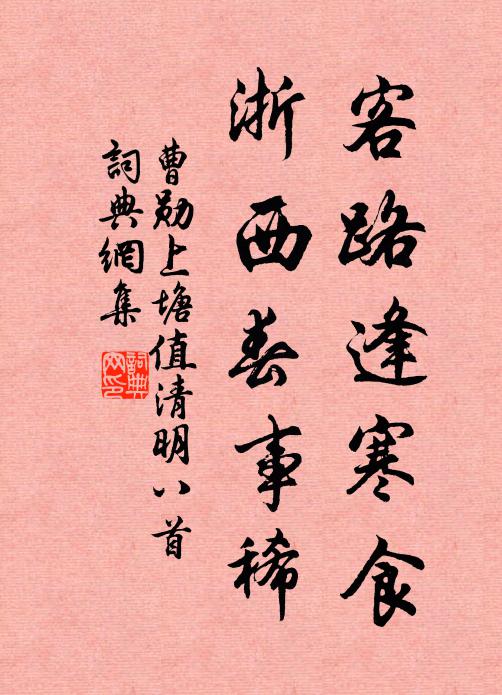 客路逢寒食
浙西春事稀
曹勛上塘值清明八首
詞典網集
詞典網印